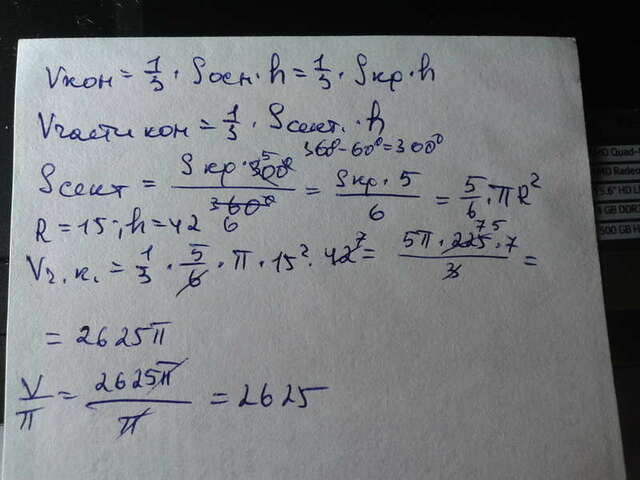 Vкон = 1/3 · Sосн · h = 1/3 · Sкр · h
Vчасти кон = 1/3 · Sсект. · h
360° - 60° = 300°
Sсект = Sкр · 300° 5 / 360° 6 = Sкр · 5 / 6 = 5/6 · πR²
R = 15; h = 42
Vч.к. = 1/3 · 5/6 · π · 15² · 42 7 = 5π · 225 75 · 7 / 3 =
= 2625π
V/π = 2625π/π = 2625
HD Quad-
MD Radeo
5.6" HD L
GB DDR
500 GB H